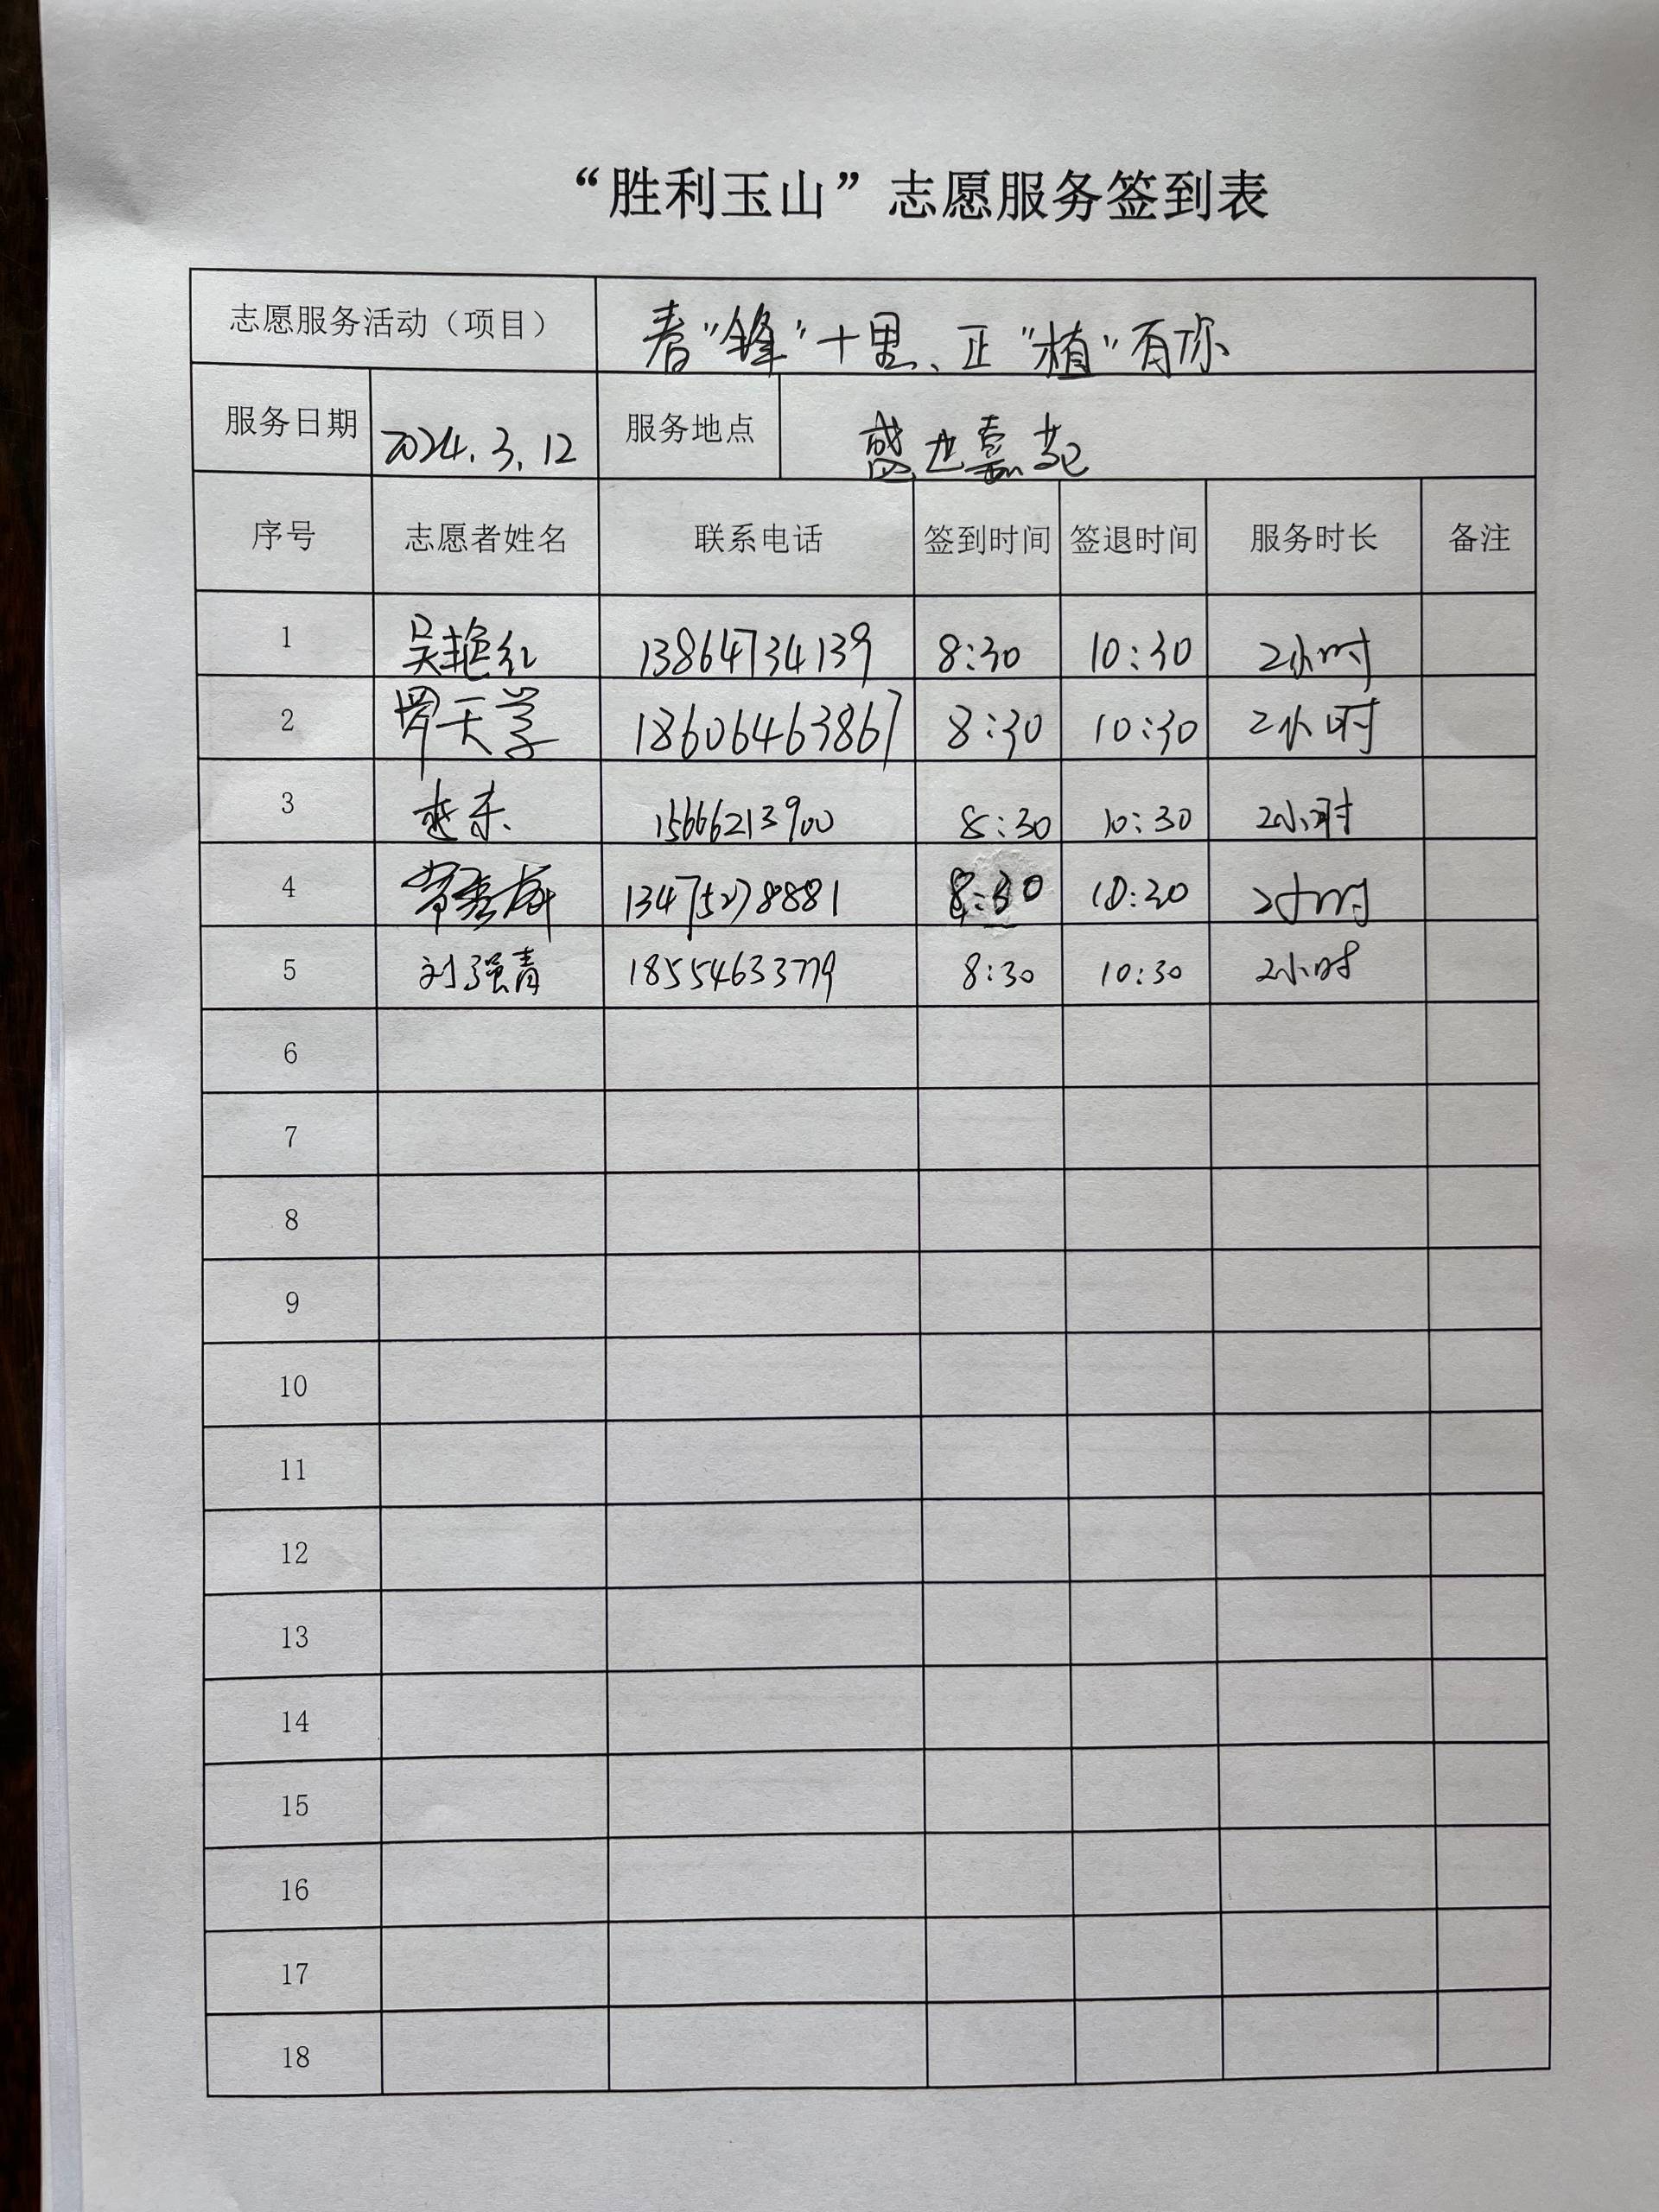 “胜利玉山”志愿服务签到表
志愿服务活动（项目） 春“锋”十里、正“植”有你
服务日期 2024.3.12 服务地点 盛世嘉苑
序号 志愿者姓名 联系电话 签到时间 签退时间 服务时长 备注
1 吴艳红 13864734139 8:30 10:30 2小时
2 罗天学 18606463867 8:30 10:30 2小时
3 15666213900 8:30 10:30 2小时
4 8:30 10:30 2小时
5 刘强青 18554633779 8:30 10:30 2小时
6
7
8
9
10
11
12
13
14
15
16
17
18